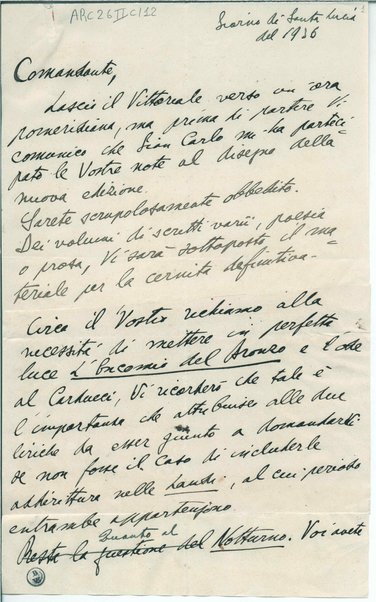 ARC26IIC/12
Giorno di Santa Lucia
del 1936
Comandante,
Lascio il Vittoriale verso un'ora
pomeridiana, ma prima di partire Vi
comunico che Gian Carlo mi ha parteci=
pato le Vostre note al disegno della
nuova edizione.
Sarete scrupolosamente obbedito.
Dei volumi di scritti varii, poesia
o prosa, Vi sarà sottoposto il ma=
teriale per la cernita definitiva.
Circa il Vostro richiamo alla
necessità di mettere in perfetta
luce L'Encomio del Bronzo e l'Ode
al Carducci, Vi ricorderò che tale è
l'importanza che attribuisco alle due
liriche da esser giunto a domandarVi
se non fosse il caso di includerle
addirittura nelle Laudi, al cui periodo
entrambe appartengono.
Quanto al
Resta la questione del Notturno. Voi avete